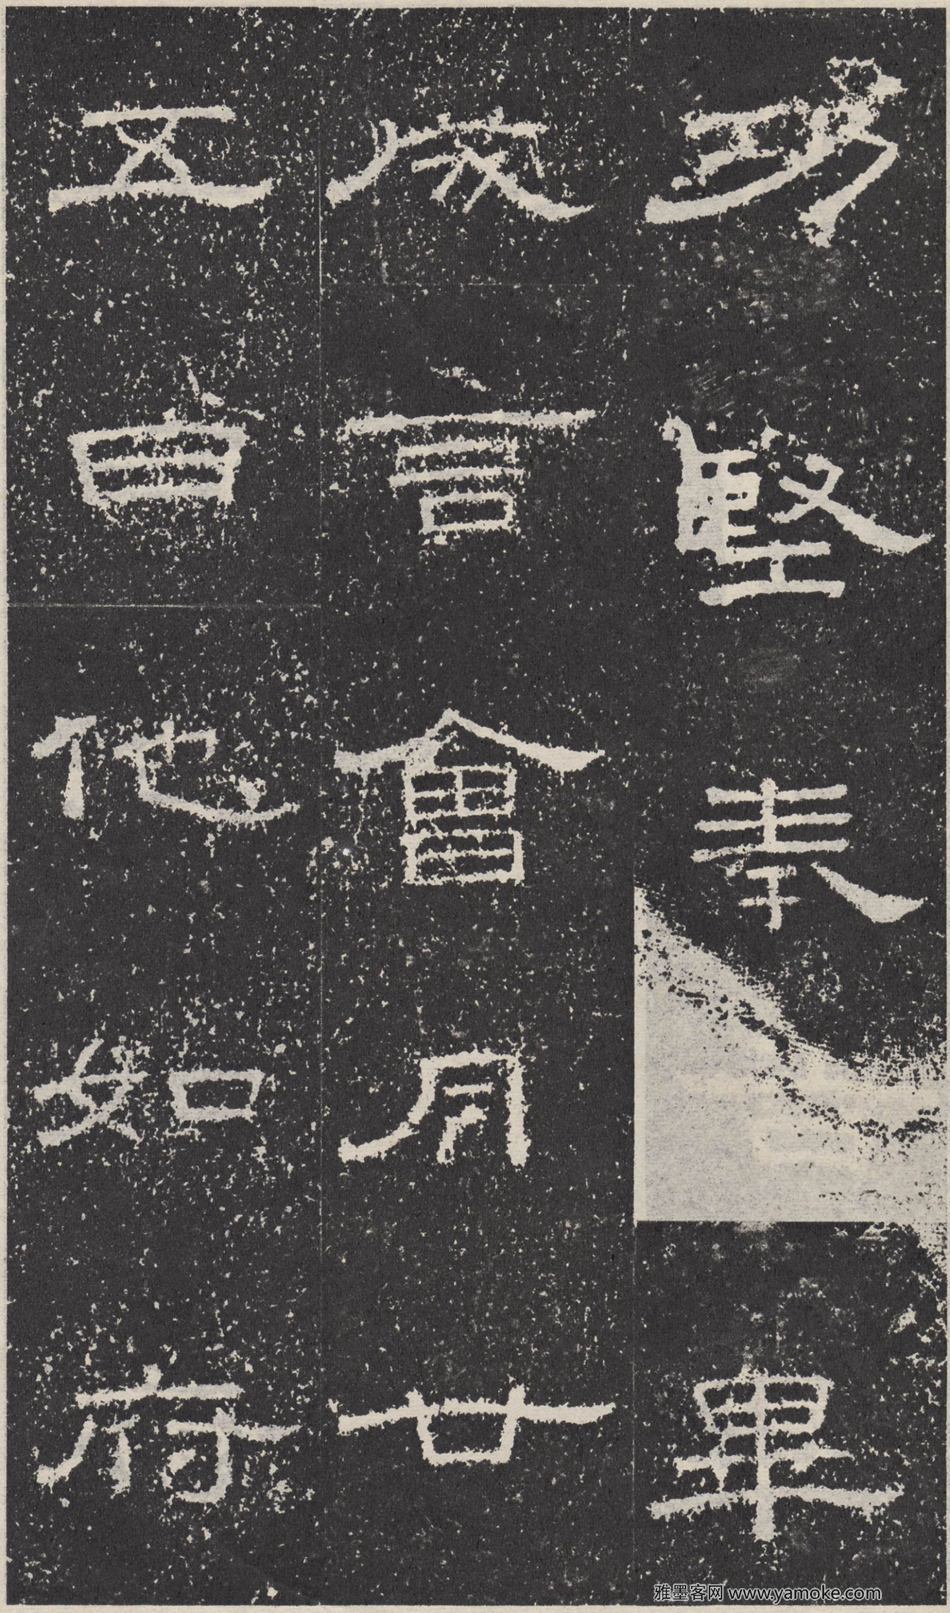 功堅奉畢
成言會月廿
五日他如府
雅墨客网 www.yamoke.com